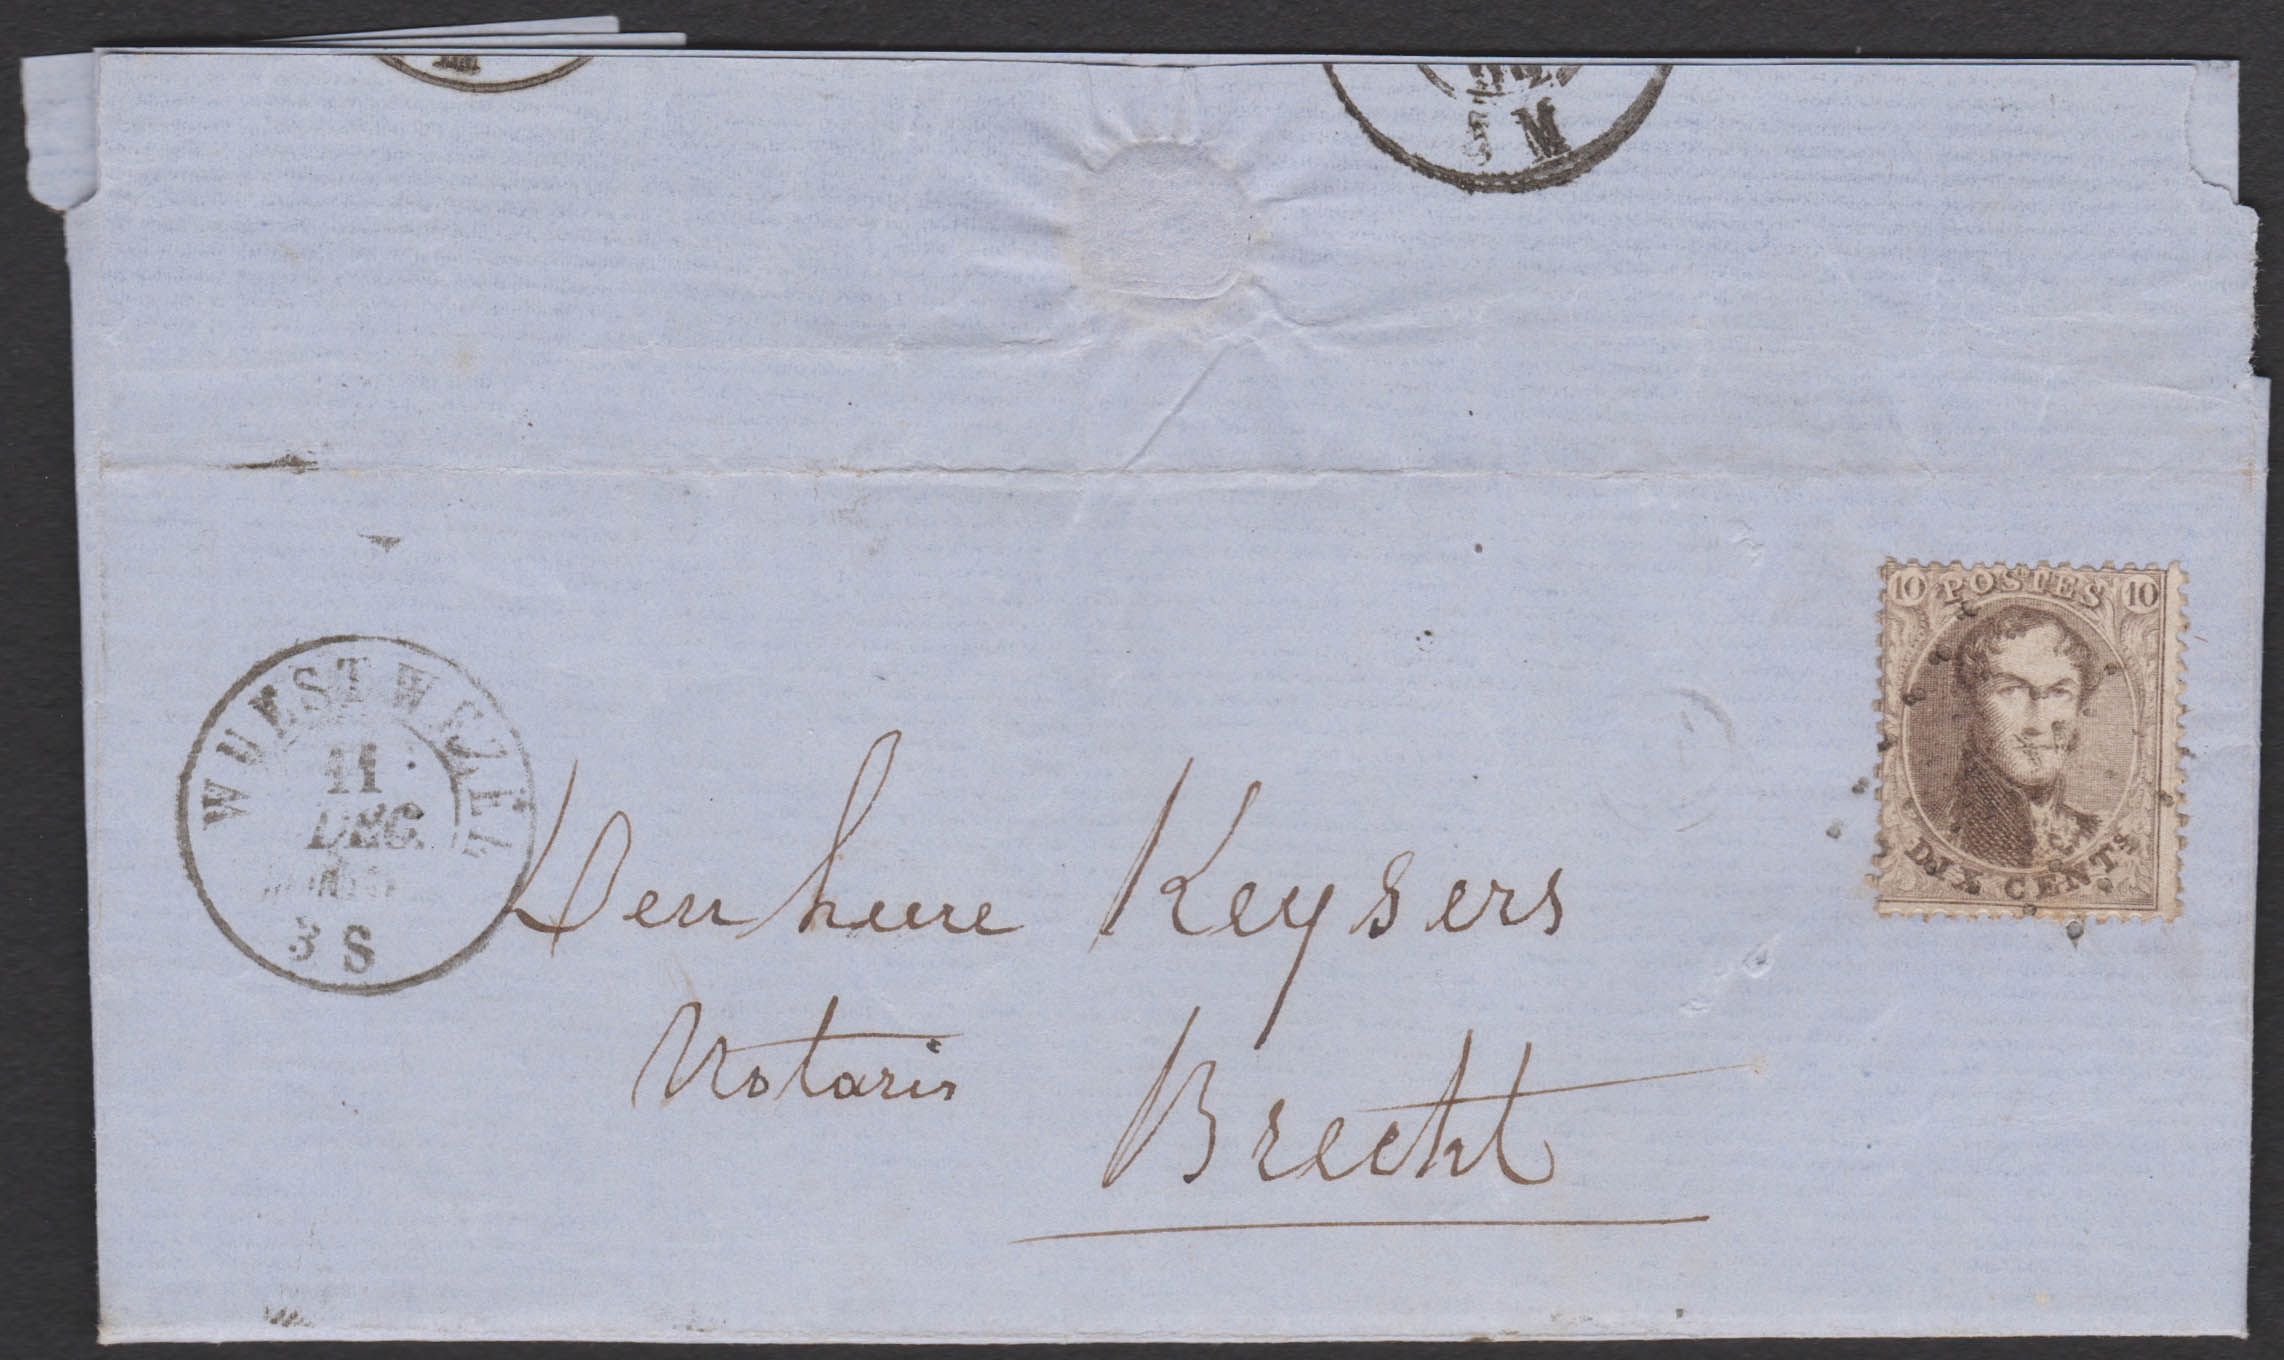 M
10 POSTES 10
DIX CENTS
WUESTWEZEL
11
DEC.
3 S
Den heere Keysers
Notaris
Brecht